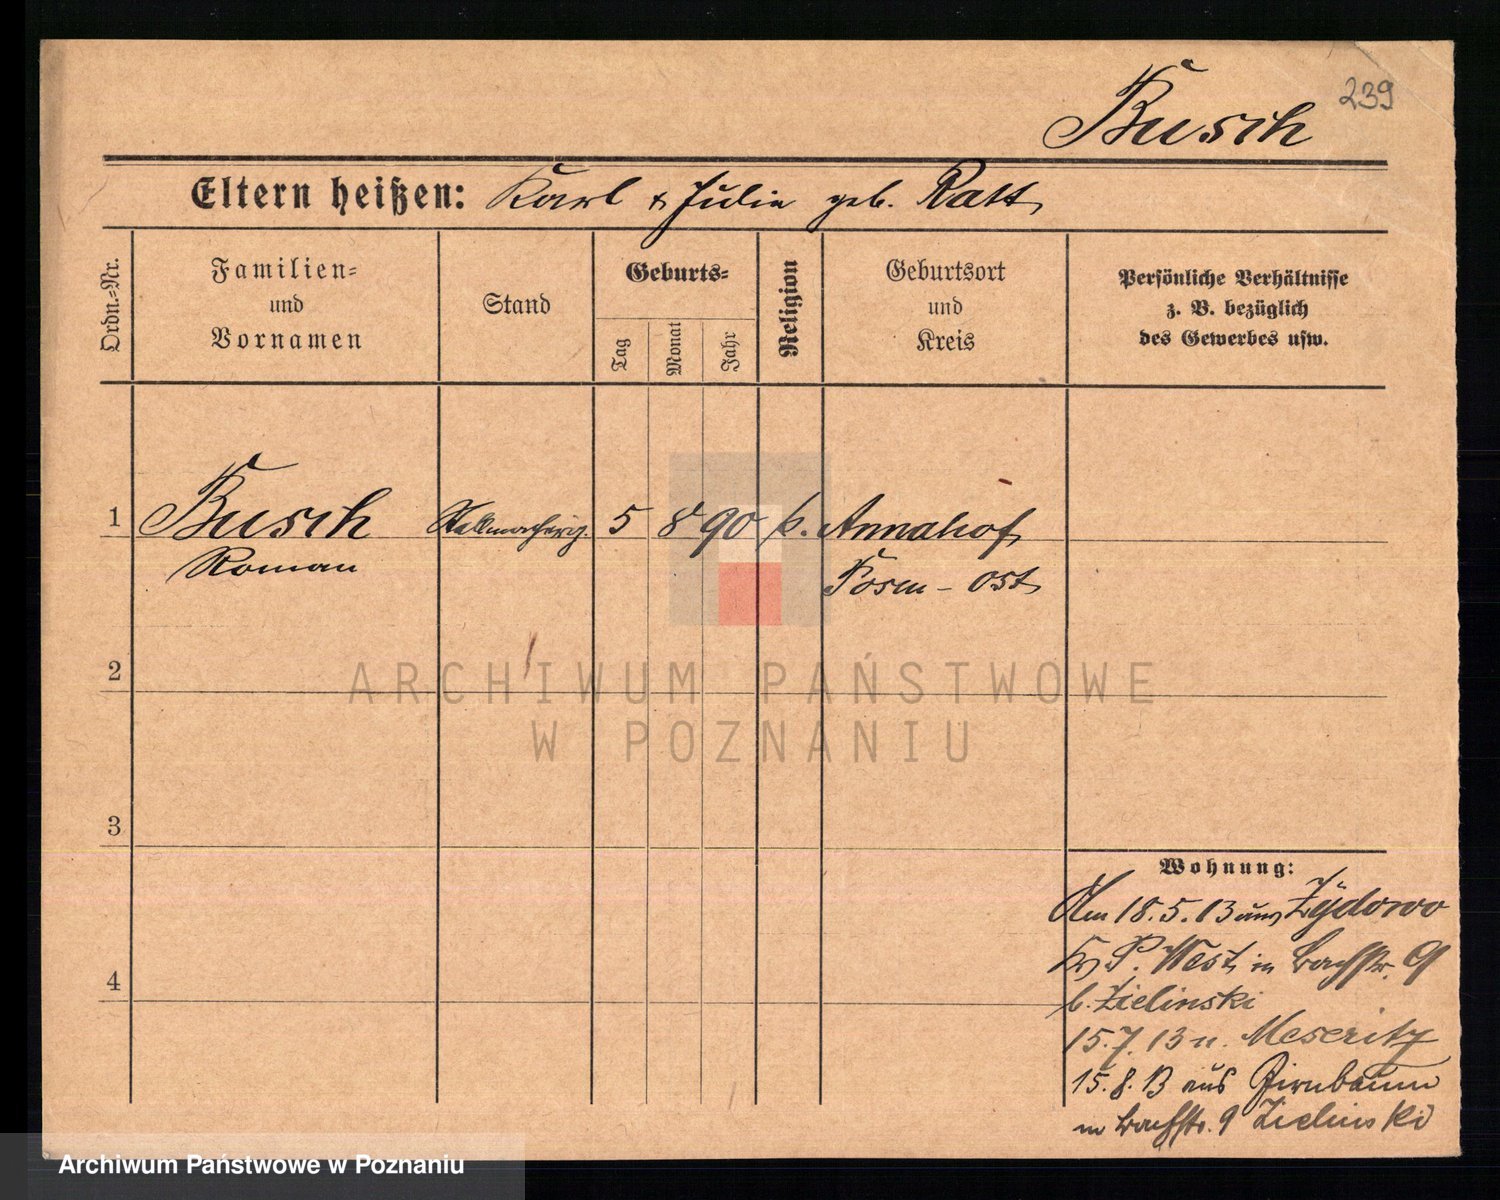 239
Busch
Eltern heißen: Karl & Julie geb. Ratt
Ordn.=Nr.
Familien=
und
Vornamen
Stand
Geburts=
Tag
Monat
Jahr
Religion
Geburtsort
und
Kreis
Persönliche Verhältnisse
z. B. bezüglich
des Gewerbes usw.
1 Busch 5 8 90 k. Annahof
Roman Posen - Ost
2
ARCHIWUM PAŃSTWOWE
W POZNANIU
3
Wohnung:
Am 18.5.13 aus Żydowo
Kr P. West in Bachstr. 9
b. Zielinski
15.7.13 n. Meseritz
15.8.13 aus Birnbaum
in Bachstr. 9 Zielinski
4
Archiwum Państwowe w Poznaniu